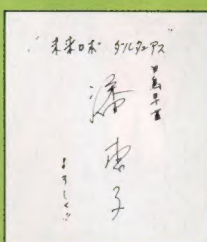 "未来ロボ ダルタニアス"
田島早苗
潘恵子
よろしく!!